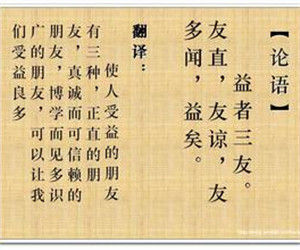 【论语】
益者三友。
友直，友谅，友
多闻，益矣。
翻译：
使人受益的朋友
有三种，正直的朋
友，真诚而可信赖的
朋友，博学而见多识
广的朋友，可以让我
们受益良多